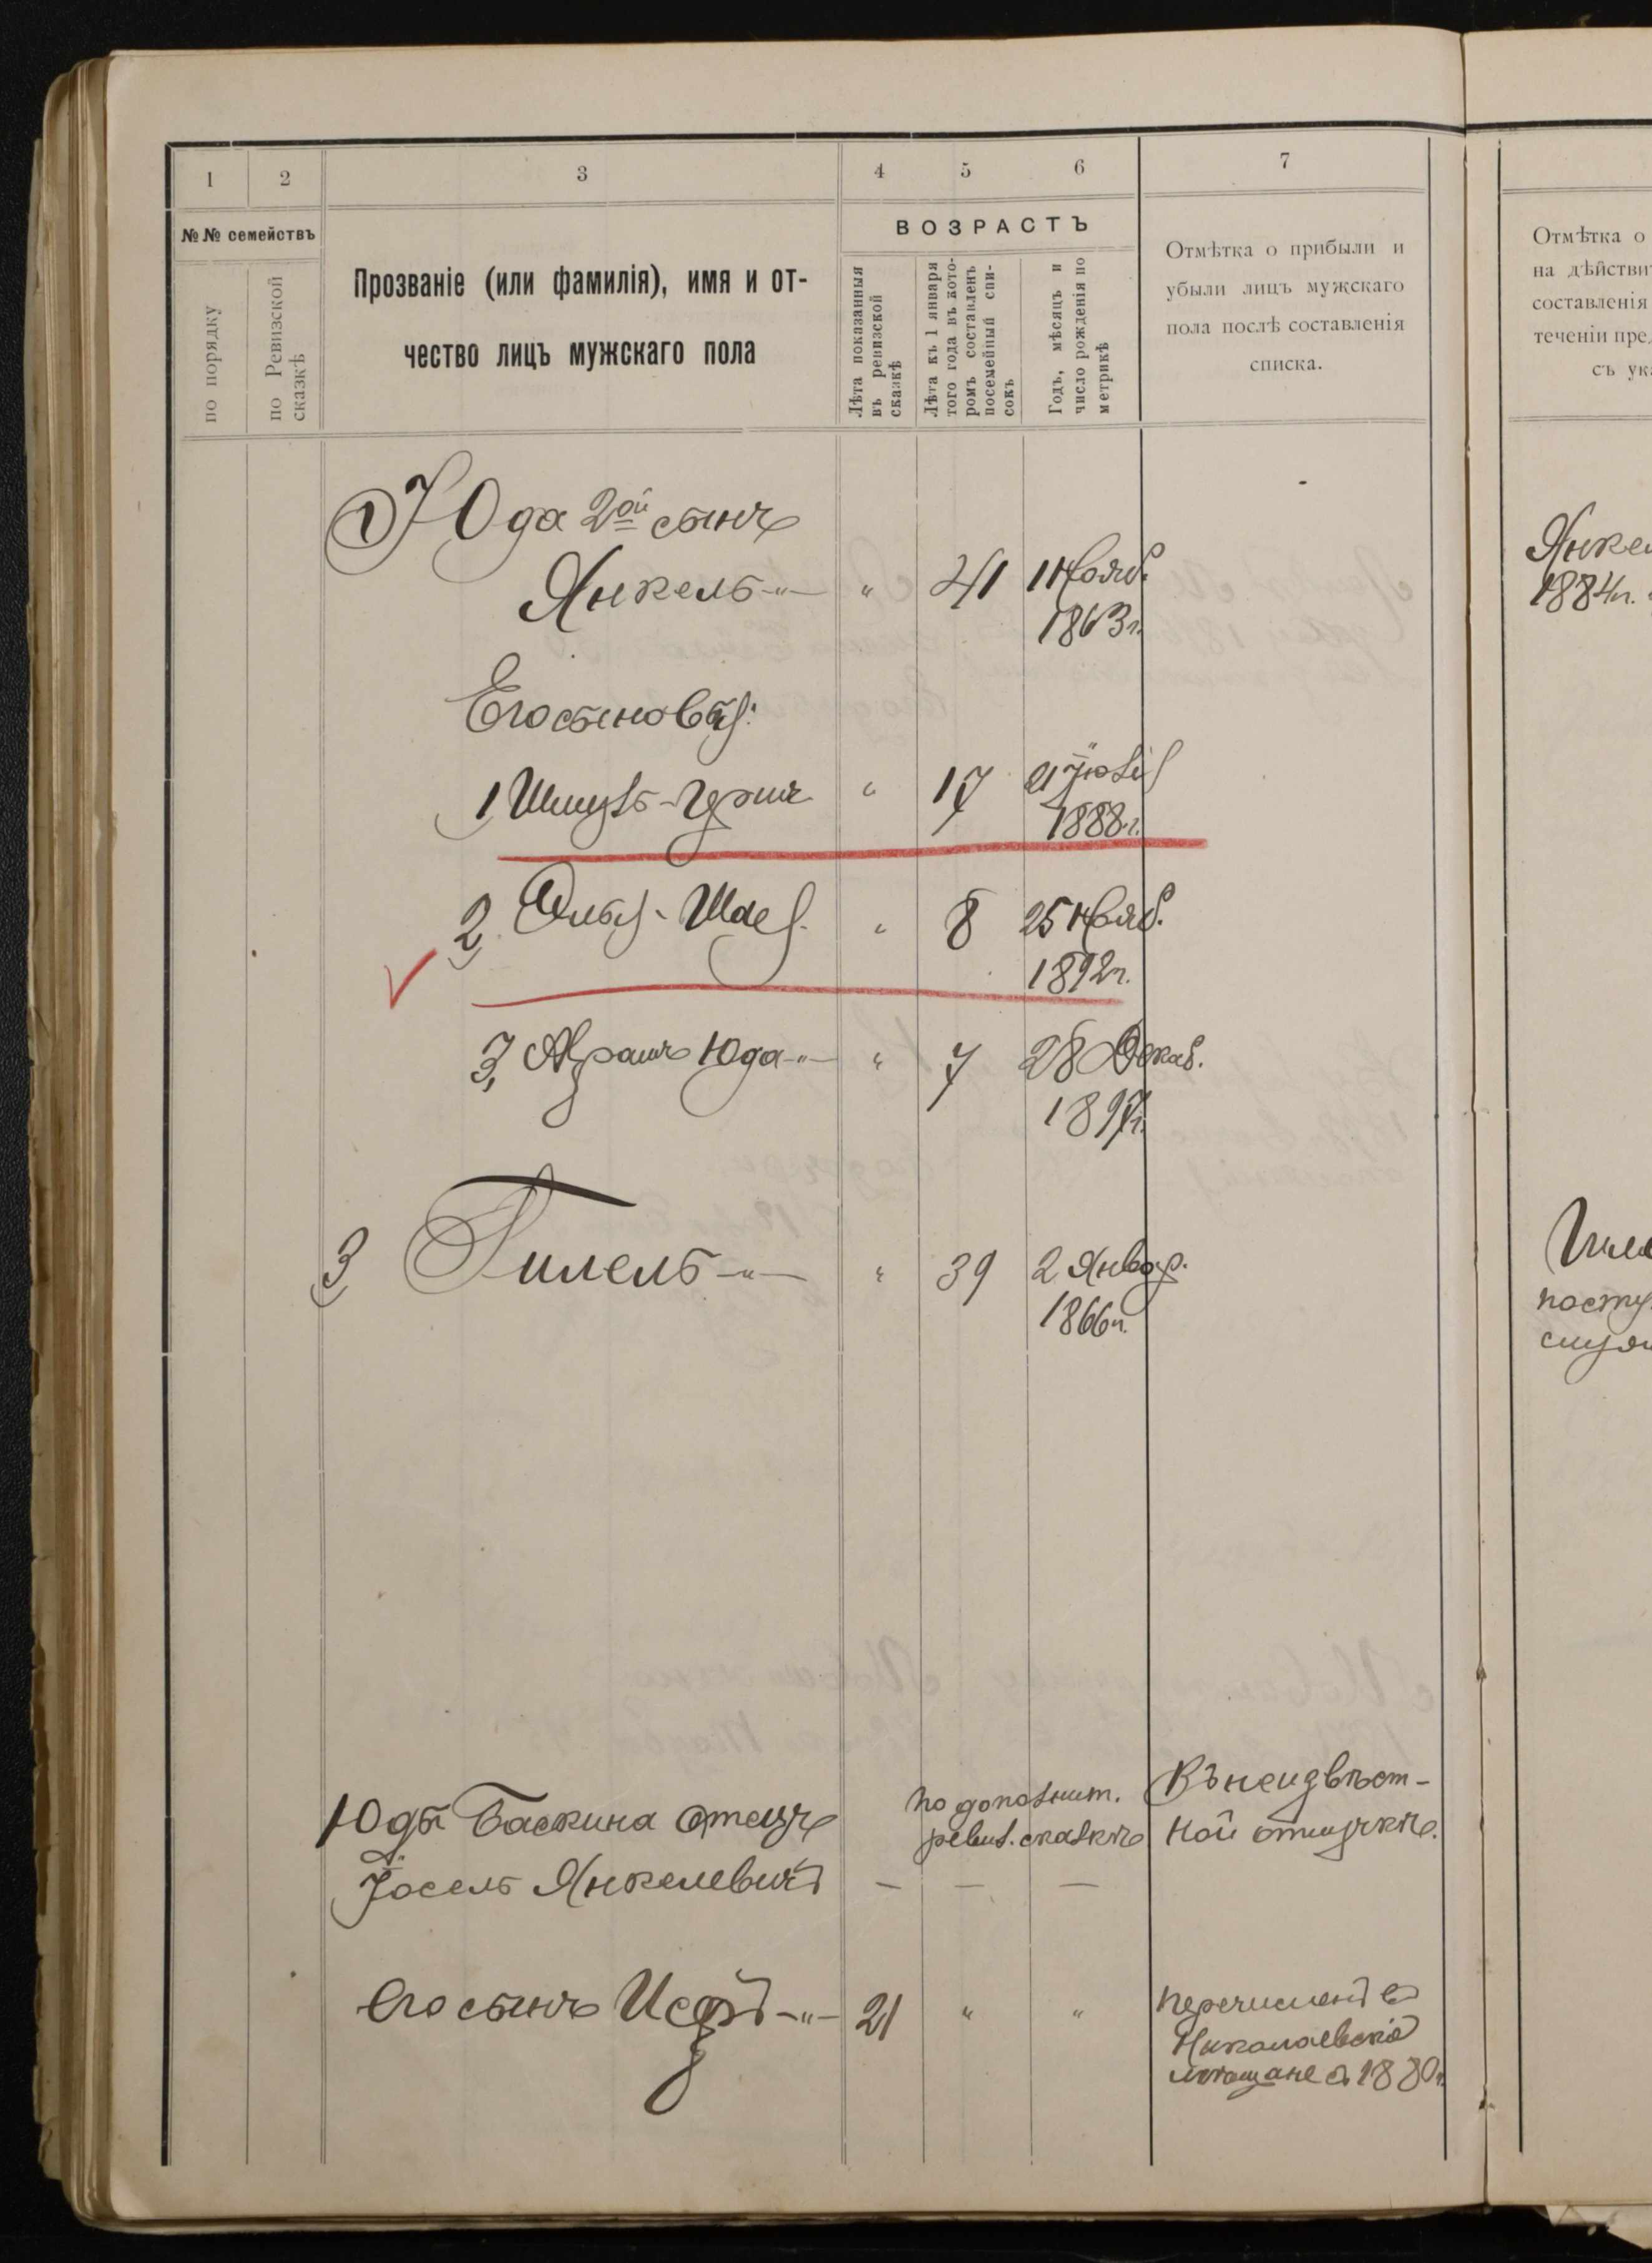 1 2 3 4 5 6 7
№№ семействъ
по порядку
по Ревизской
сказкѣ
Прозваніе (или фамилія), имя и от-
чество лицъ мужскаго пола
ВОЗРАСТЪ
Лѣта показанныя
въ ревизской
сказкѣ
Лѣта къ 1 января
того года въ кото-
ромъ составленъ
посемейный спи-
сокъ
Годъ, мѣсяцъ и
число рожденія по
метрикѣ
Отмѣтка о прибыли и
убыли лицъ мужскаго
пола послѣ составленія
списка.
Юда 2ой сынъ
Янкель -"- " 41 1 Нояб.
1863г.
Его сыновья:
1 Шмуль-Гирш " 17 21 Іюля
1888г.
2 Шая. " 8 25 Нояб.
1892г.
3, Абрамъ Юда -"- " 7 28 Декаб.
1897г.
3 Гилель -"- " 39 2 Январ.
1866г.
Юды Баскина отецъ
Іосель Янкелевичъ — — —
по дополнит.
ревиз. сказкѣ
Въ неизвѣст-
ной отлучкѣ.
Его сынъ -"- 21 " "
перечисленъ въ
Николаевскіе
мѣщане съ 1880г.
Отмѣтка о
на дѣйстви
составленія
теченіи пред
съ ука
Янкел
1884г.
Гиле
посту